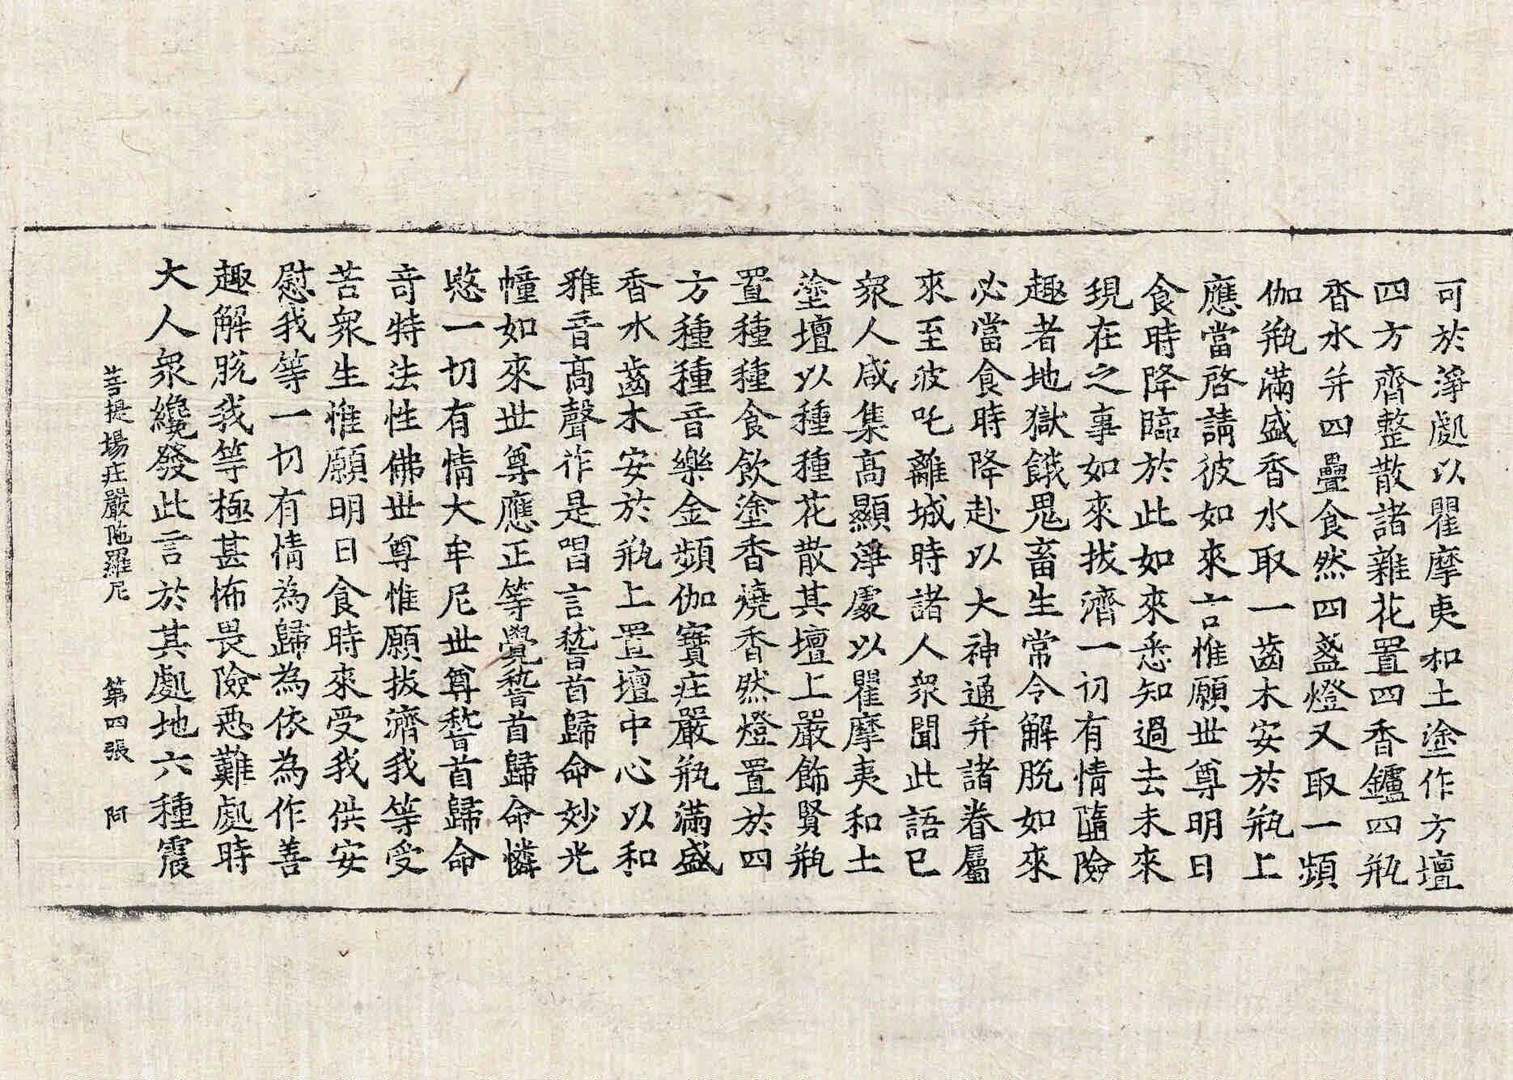 可於淨處以瞿摩夷和土塗作方壇
四方齊整散諸雜花置四香鑪四瓶
香水并四疊食然四盞燈又取一頻
伽瓶滿盛香水取一齒木安於瓶上
應當啓請彼如來言惟願世尊明日
食時降臨於此如來悉知過去未來
現在之事如來拔濟一切有情隨險
趣者地獄餓鬼畜生常令解脫如來
必當食時降赴以大神通并諸眷屬
來至波吒離城時諸人衆聞此語已
衆人咸集高顯淨處以瞿摩夷和土
塗壇以種種花散其壇上嚴飾賢瓶
置種種食飲塗香燒香然燈置於四
方種種音樂金頻伽寶庄嚴瓶滿盛
香水齒木安於瓶上置壇中心以和
雅音高聲作是唱言𥡴首歸命妙光
幢如來世尊應正等覺𥡴首歸命憐
愍一切有情大牟尼世尊𥡴首歸命
奇特法性佛世尊惟願拔濟我等受
苦衆生惟願明日食時來受我供安
慰我等一切有情為歸為依為作善
趣解脫我等極甚怖畏險惡難處時
大人衆纔發此言於其處地六種震
菩提場庄嚴陁羅尼 第四張 阿